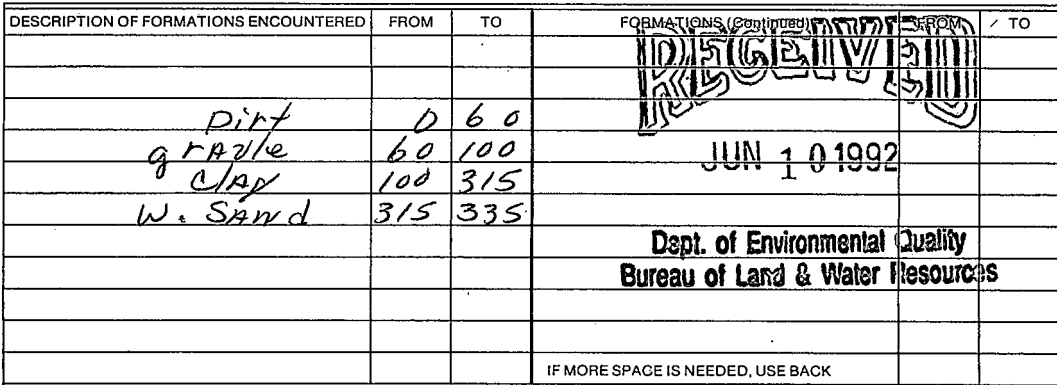 DESCRIPTION OF FORMATIONS ENCOUNTERED FROM TO FORMATIONS (Continued) FROM TO
RECEIVED
Dirt 0 60
gravle 60 100
JUN 10 1992
Clay 100 315
W. Sand 315 335
Dept. of Environmental Quality
Bureau of Land & Water Resources
IF MORE SPACE IS NEEDED, USE BACK